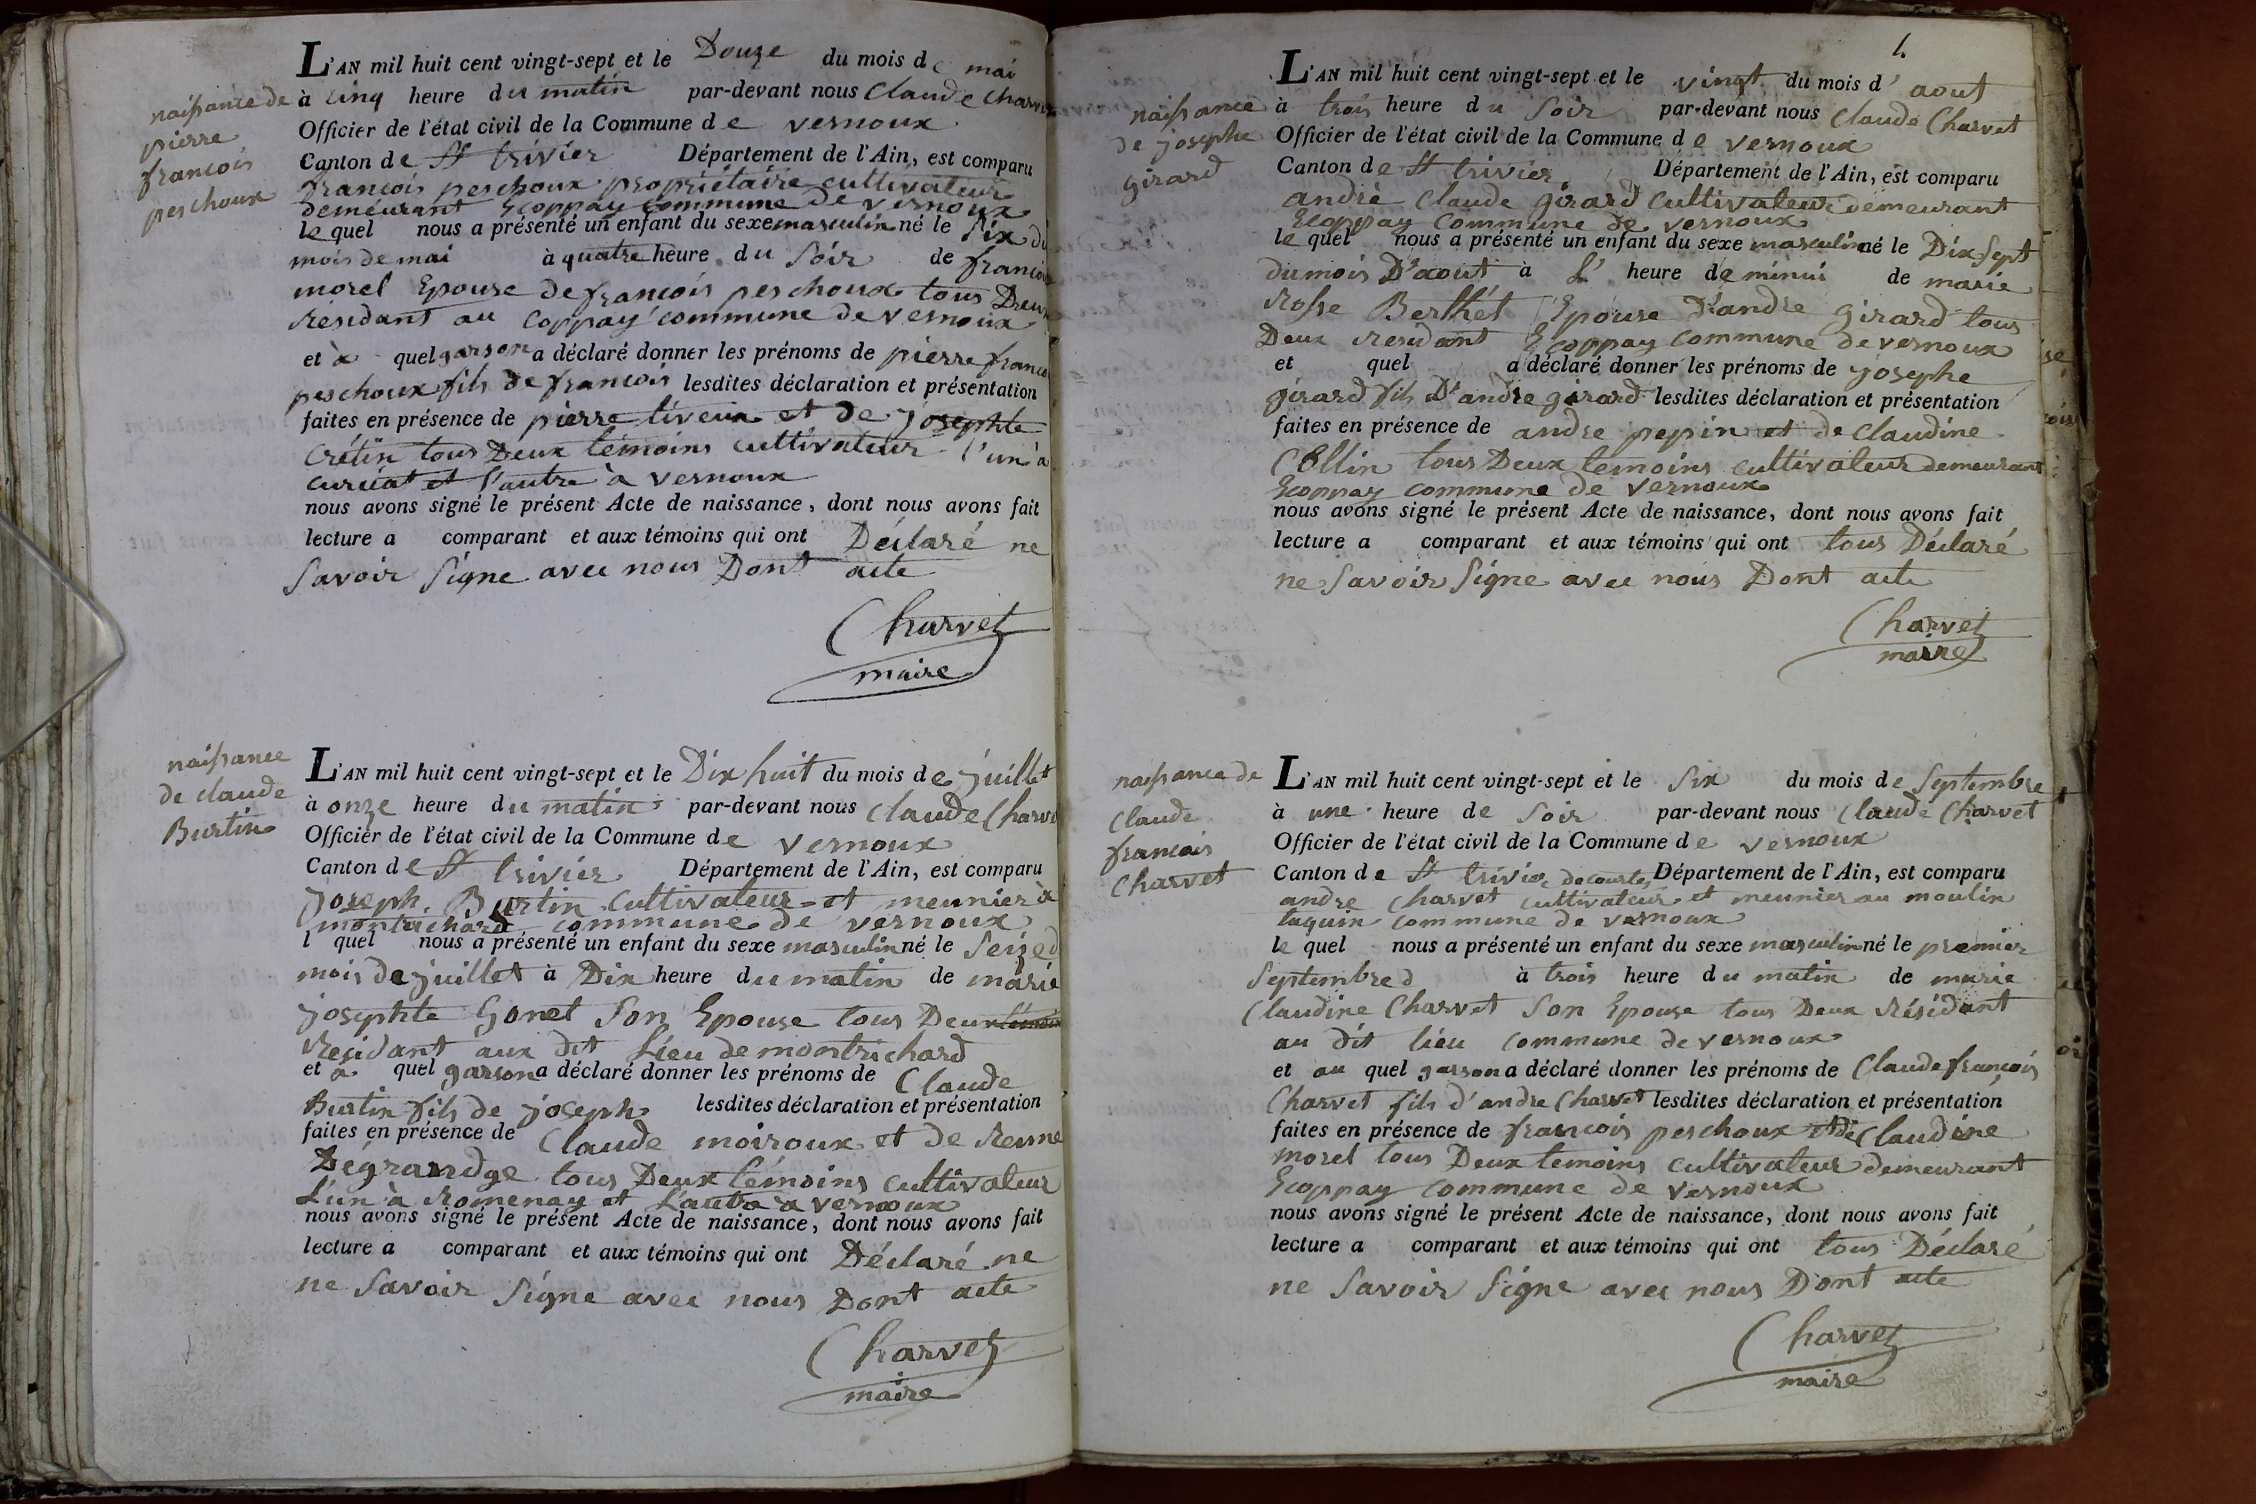 naissance de
pierre
francois
peschoux
L'AN mil huit cent vingt-sept et le Douze du mois de mai
à cinq heure du matin par-devant nous Claude Charvet
Officier de l'état civil de la Commune de vernoux
Canton de St trivier Département de l'Ain, est comparu
francois peschoux propriétaire cultivateur
demeurant Ecoppay commune de vernoux
le quel nous a présenté un enfant du sexe masculin né le six du
mois de mai à quatre heure du soir de francoise
morel Epouse de francois peschoux tous Deux
résidant au coppay commune de vernoux
et à quel garson a déclaré donner les prénoms de pierre francois
peschoux fils de francois lesdites déclaration et présentation
faites en présence de pierre liveux et de josephte
crétin tous Deux témoins cultivateur l'un à
curciat et l'autre à vernoux
nous avons signé le présent Acte de naissance, dont nous avons fait
lecture a comparant et aux témoins qui ont Déclaré ne
Savoir Signe avec nous Dont acte
Charvet
maire
naissance
de claude
Burtin
L'AN mil huit cent vingt-sept et le Dix huit du mois de juillet
à onze heure du matin par-devant nous Claude Charvet
Officier de l'état civil de la Commune de vernoux
Canton de St trivier Département de l'Ain, est comparu
joseph Burtin cultivateur et meunier à
montrichard commune de vernoux
l quel nous a présenté un enfant du sexe masculin né le Seize d
mois de juillet à Dix heure du matin de marie
josephte Gonet Son Epouse tous Deux témoin
Residant aux dit Lieu de montrichard
et a quel garson a déclaré donner les prénoms de Claude
Burtin fils de joseph lesdites déclaration et présentation
faites en présence de Claude moiroux et de Renne
Dégrandge tous Deux témoins cultivateur
L'un à Romenay et L'autre à vernoux
nous avons signé le présent Acte de naissance, dont nous avons fait
lecture a comparant et aux témoins qui ont Déclaré ne
ne Savoir Signe avec nous Dont acte
Charvet
maire
naissance
de josephe
girard
L'AN mil huit cent vingt-sept et le vingt du mois d'aout
à trois heure du Soir par-devant nous Claude Charvet
Officier de l'état civil de la Commune de vernoux
Canton de St trivier Département de l'Ain, est comparu
andré Claude girard cultivateur demeurant
Ecoppay Commune de vernoux
le quel nous a présenté un enfant du sexe masculin né le Dix Sept
du mois D'aout à L' heure de minui de marie
Rosse Berthét Epouse D'andre girard tous
Deux residant Ecoppay commune de vernoux
et quel a déclaré donner les prénoms de josephe
girard fils D'andre girard lesdites déclaration et présentation
faites en présence de andre pepin et de claudine
Collin tous Deux temoins cultivateur demeurant
Ecoppay commune de vernoux
nous avons signé le présent Acte de naissance, dont nous avons fait
lecture a comparant et aux témoins qui ont tous Déclaré
ne Savoir Signe avec nous Dont acte
Charvet
maire
naissance de
Claude
francois
Charvet
L'AN mil huit cent vingt-sept et le Six du mois de Septembre
à une heure de Soir par-devant nous Claude Charvet
Officier de l'état civil de la Commune de vernoux
Canton de St trivier de courtes Département de l'Ain, est comparu
andre Charvet cultivateur et meunier au moulin
taquin commune de vernoux
le quel nous a présenté un enfant du sexe masculin né le premier
Septembre d à trois heure du matin de marie
Claudine Charvet Son Epouse tous Deux Résidant
au dit lieu commune de vernoux
et au quel garson a déclaré donner les prénoms de Claude francois
Charvet fils d'andre Charvet lesdites déclaration et présentation
faites en présence de francois peschoux et de Claudine
morel tous Deux temoins cultivateur demeurant
Ecoppay commune de vernoux
nous avons signé le présent Acte de naissance, dont nous avons fait
lecture a comparant et aux témoins qui ont tous Déclaré
ne Savoir Signe avec nous Dont acte
Charvet
maire